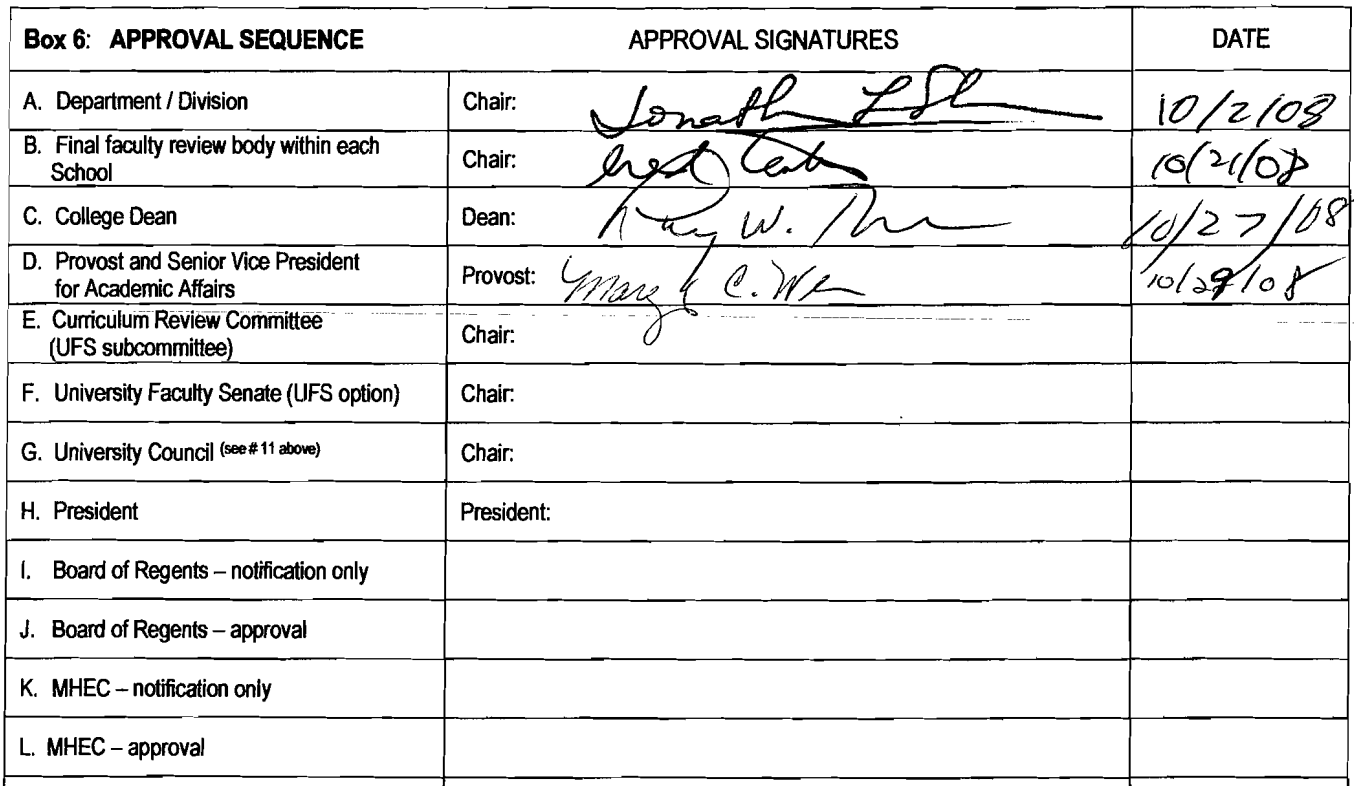 Box 6: APPROVAL SEQUENCE APPROVAL SIGNATURES DATE
A. Department / Division Chair: Jonath 10/2/08
B. Final faculty review body within each
School Chair: 10/21/08
C. College Dean Dean: W. 10/27/08
D. Provost and Senior Vice President
for Academic Affairs Provost: C. 10/29/08
E. Curriculum Review Committee
(UFS subcommittee) Chair:
F. University Faculty Senate (UFS option) Chair:
G. University Council (see # 11 above) Chair:
H. President President:
I. Board of Regents – notification only
J. Board of Regents – approval
K. MHEC – notification only
L. MHEC – approval